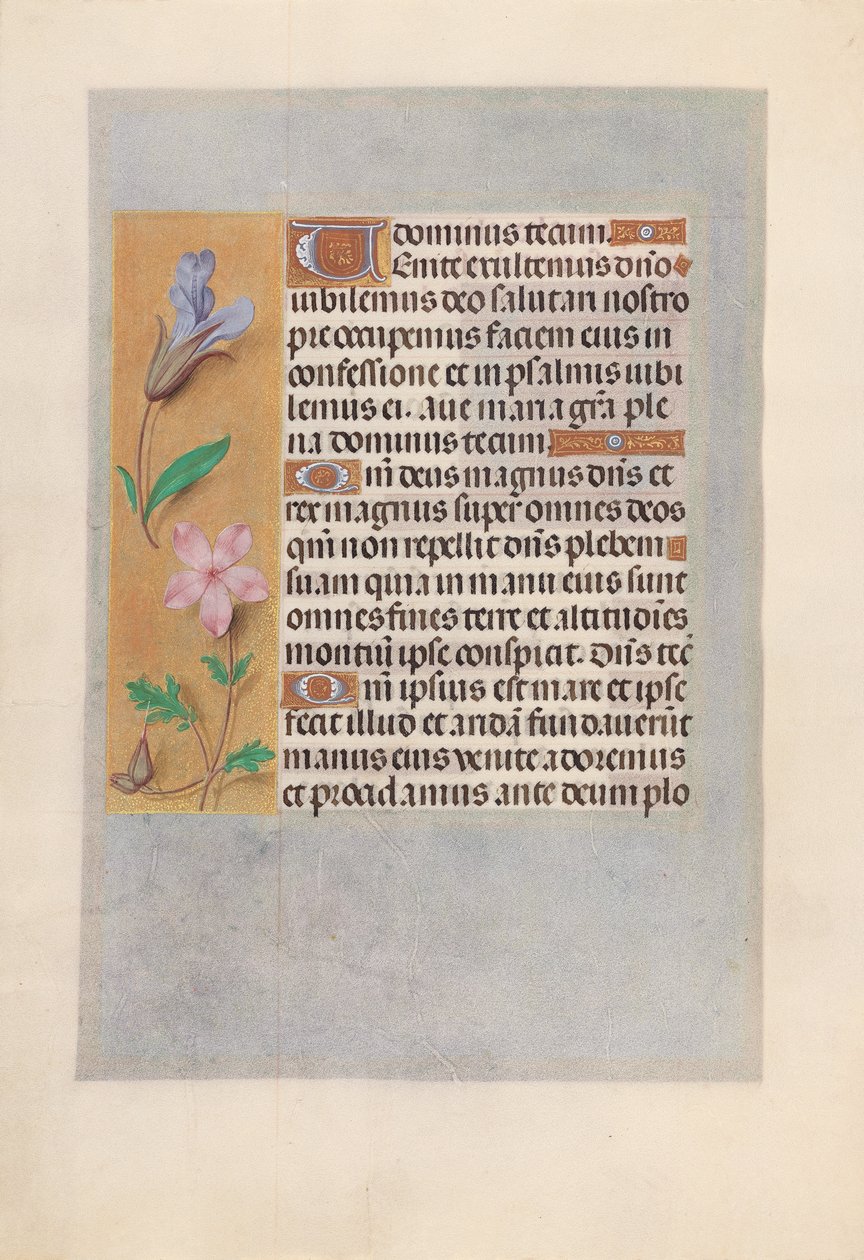 dominus tecum.
Venite exultemus dn̄o
iubilemus deo salutari nostro
preoccupemus faciem eius in
confessione et in psalmis iubi
lemus ei. Aue maria gr̄a ple
na dominus tecum
Qm̄ deus magnus dn̄s et
rex magnus super omnes deos
qm̄ non repellit dn̄s plebem
suam quia in manu eius sunt
omnes fines terre et altitudīes
montiū ipse conspicit. Dn̄s tec̄
Qm̄ ipsius est mare et ipse
fecit illud et aridā fundauerūt
manus eius venite adoremus
et procidamus ante deum plo